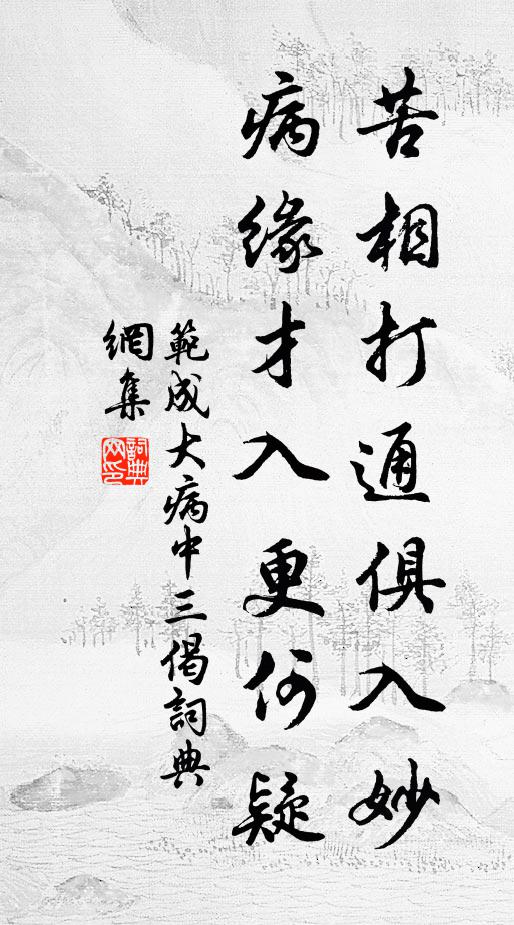 苦相打通俱入妙
病缘才入更何疑
範成大病中三偈詞典
網集
詞典網印